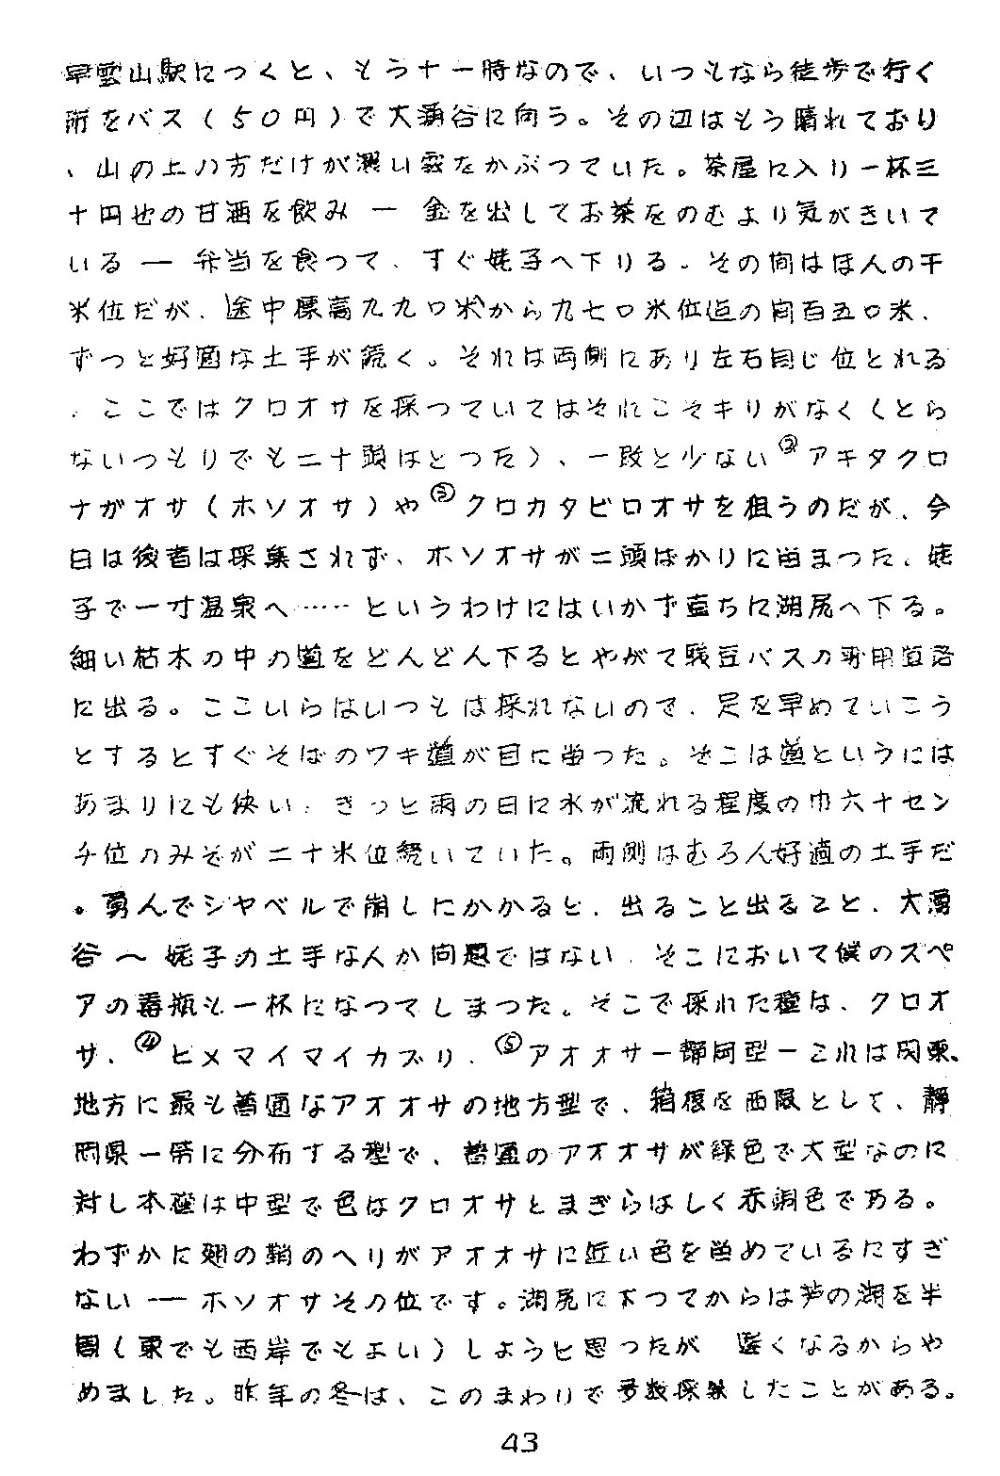 早雲山駅につくと、もう十一時なので、いつもなら徒歩で行く
所をバス(50円)で大涌谷に向う。その辺はもう晴れており
、山の上の方だけが濃い雲をかぶつていた。茶屋に入り一杯三
十円也の甘酒を飲み ― 金を出してお茶をのむより気がきいて
いる ― 弁当を食つて、すぐ姥子へ下りる。その間はほんの千
米位だが、途中標高九九〇米から九七〇米位迄の間百五〇米、
ずつと好適な土手が続く。それは両側にあり左右同じ位とれる
。ここではクロオサを採つていてはそれこそキリがなく(とら
ないつもりでも二十頭はとつた)、一段と少ない②アキタクロ
ナガオサ(ホソオサ)や③クロカタビロオサを狙うのだが、今
日は後者は採集されず、ホソオサが二頭ばかりに留まつた。姥
子で一寸温泉へ……というわけにはいかず直ちに湖尻へ下る。
細い枯木の中の道をどんどん下るとやがて駿豆バスの専用道路
に出る。ここいらはいつもは採れないので、足を早めていこう
とするとすぐそばのワキ道が目に留つた。そこは道というには
あまりにも狭い、きっと雨の日に水が流れる程度の巾六十セン
チ位のみぞが二十米位続いていた。両側はむろん好適の土手だ
。勇んでシヤベルで崩しにかかると、出ること出ること、大涌
谷〜姥子の土手なんか問題ではない。そこにおいて僕のスペ
アの毒瓶も一杯になつてしまつた。そこで採れた種は、クロオ
サ、④ヒメマイマイカズリ、⑤アオオサ―静岡型―これは関東、
地方に最も普通なアオオサの地方型で、箱根を西限として、静
岡県一帯に分布する型で、普通のアオオサが緑色で大型なのに
対し本種は中型で色はクロオサとまぎらはしく赤銅色である。
わずかに翅の鞘のヘリがアオオサに近い色を留めているにすぎ
ない ― ホソオサその位です。湖尻に下つてからは芦の湖を半
周(東でも西岸でもよい)しようと思つたが 遅くなるからや
めました。昨年の冬は、このまわりで多数採集したことがある。
43